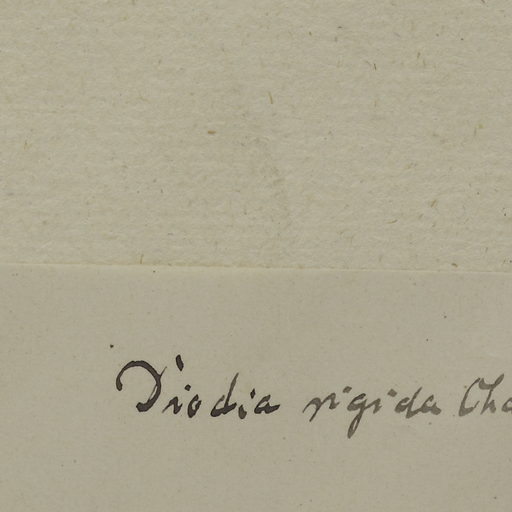 Diodia rigida Cha